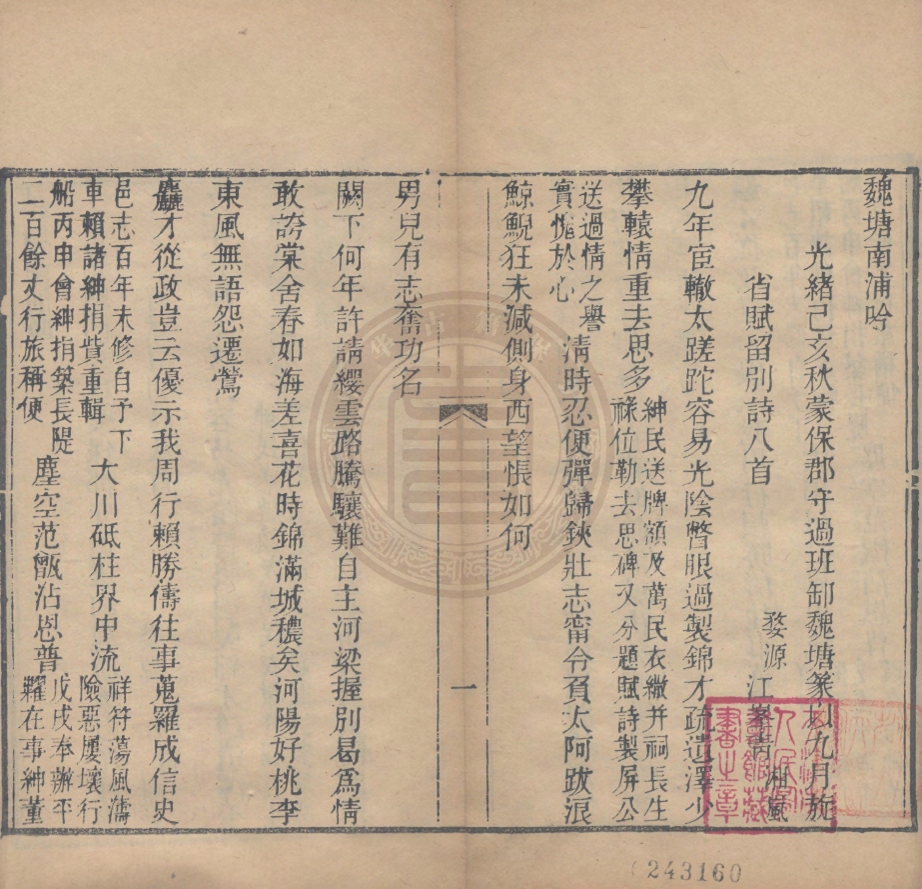 魏塘南浦吟
光緒己亥秋蒙保郡守過班卸魏塘篆以九月旋
省賦留別詩八首
婺源江峯青湘嵐
九年宦轍太蹉跎容易光陰瞥眼過製錦才疏遺澤少
攀轅情重去思多紳民送牌額及萬民衣繖并祠長生
祿位勒去思碑又分題賦詩製屏公
送過情之譽
實愧於心清時忍便彈歸鋏壯志甯令負太阿跋浪
鯨鯢狂未減側身西望悵如何
男兒有志奮功名
闕下何年許請纓雲路騰驤難自主河梁握別曷爲情
敢誇棠舍春如海差喜花時錦滿城穠矣河陽好桃李
東風無語怨遷鶯
麤才從政豈云優示我周行賴勝儔往事蒐羅成信史
邑志百年未修自予下
車賴諸紳捐貲重輯大川砥柱界中流祥符蕩風濤
險惡屢壞行
船丙申會紳捐築長隄
二百餘丈行旅稱便塵空范甑沾恩普戊戌奉辦平
糶在事紳董
一
243160